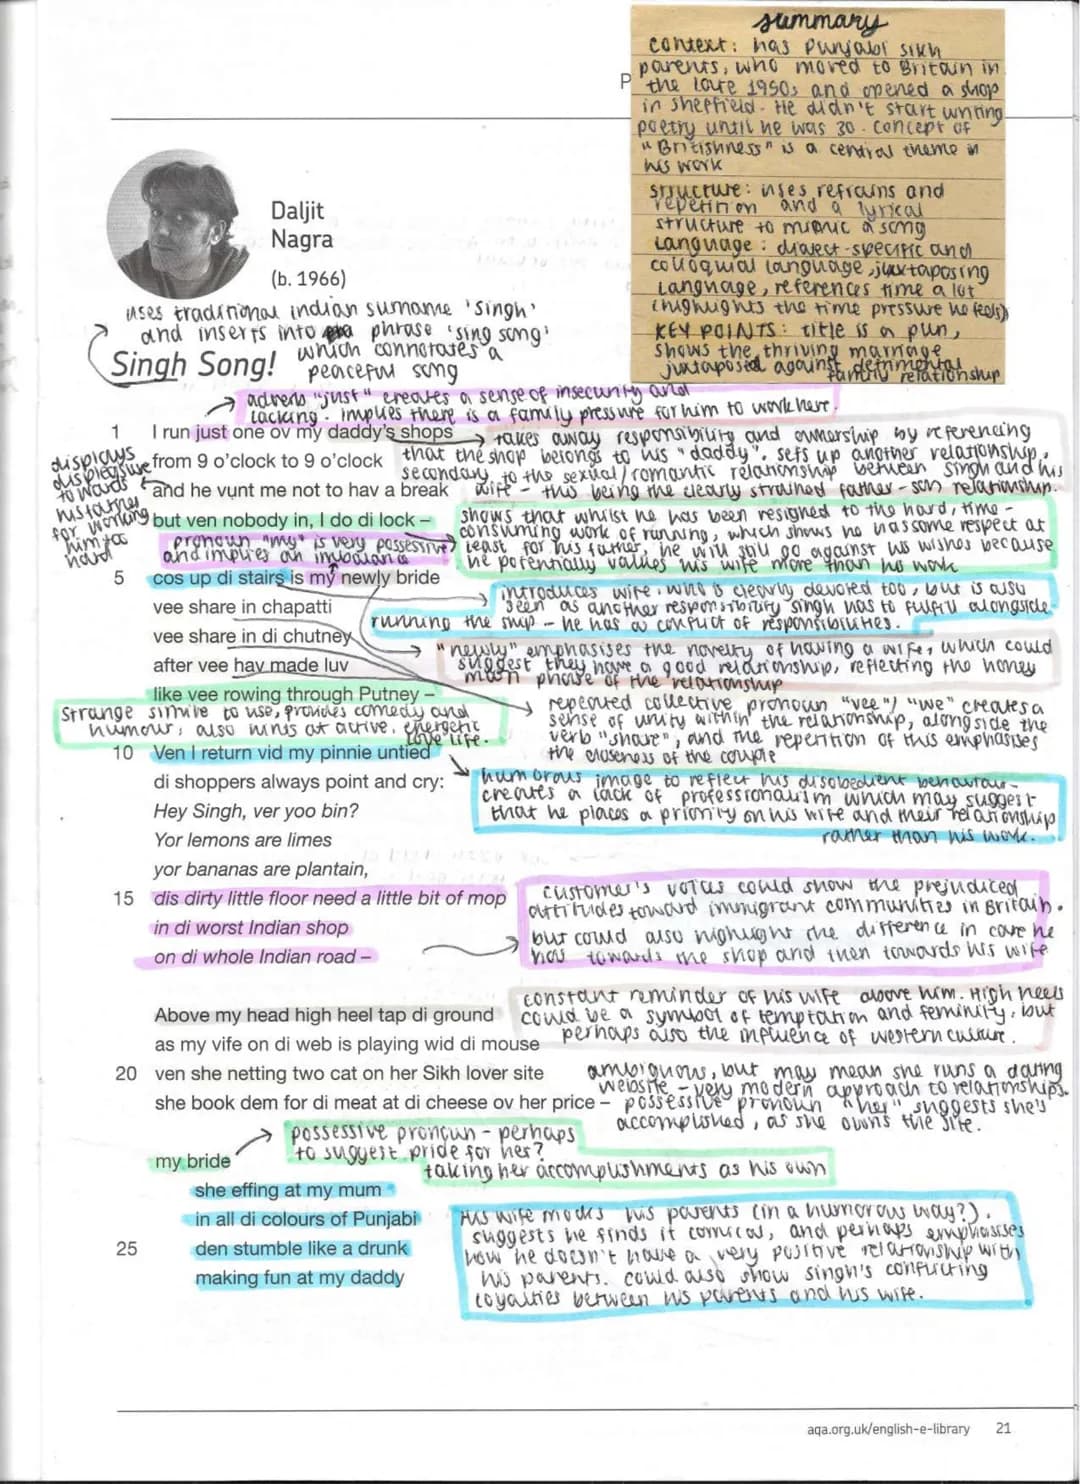 summary
context: has Punjabi Sikh
parents, who moved to Britain in
the late 1950s and opened a shop
in Sheffield. He didn't start writing
poetry until he was 30. concept of
"Britishness" is a central theme in
his work
structure: uses refrains and
repetition and a lyrical
structure to mimic a song
Language: dialect-specific and
colloquial language, juxtaposing
language, references time a lot
(highlights the time pressure he feels)
KEY POINTS: title is a pun,
shows the thriving marriage
juxtaposed against detrimental
family relationship
P
Daljit
Nagra
(b. 1966)
uses traditional indian surname 'Singh'
and inserts into phrase 'sing song'
which connotates a
peaceful song
Singh Song!
adverb "just" creates a sense of insecurity and
lacking. implies there is a family pressure for him to work here.
1 I run just one ov my daddy's shops
takes away responsibility and ownership by referencing
that the shop belongs to his "daddy". sets up another relationship,
secondary to the sexual/romantic relationship between Singh and his
wife - this being the clearly strained father-son relationship.
from 9 o'clock to 9 o'clock
displays
displeasure
towards
his father
for working
him too
hard
and he vunt me not to hav a break
but ven nobody in, I do di lock –
shows that whilst he has been resigned to the hard, time-
consuming work of running, which shows he has some respect at
least for his father, he will still go against his wishes because
he potentially values his wife more than his work
pronoun "my" is very possessive
and implies an imbalance
5 cos up di stairs is my newly bride
introduces wife, who is clearly devoted too, but is also
seen as another responsibility Singh has to fulfil alongside
running the shop - he has a conflict of responsibilities.
vee share in chapatti
vee share in di chutney
"newly" emphasises the novelty of having a wife, which could
suggest they have a good relationship, reflecting the honey
moon phase of the relationship
after vee hav made luv
like vee rowing through Putney –
strange simile to use, provides comedy and
humour, also hints at active, energetic
love life.
repeated collective pronoun "vee"/"we" creates a
sense of unity within the relationship, alongside the
verb "share", and the repetition of this emphasises
the closeness of the couple
10 Ven I return vid my pinnie untied
di shoppers always point and cry:
humorous image to reflect his disobedient behaviour -
creates a lack of professionalism which may suggest
that he places a priority on his wife and their relationship
rather than his work.
Hey Singh, ver yoo bin?
Yor lemons are limes
yor bananas are plantain,
15 dis dirty little floor need a little bit of mop
in di worst Indian shop
on di whole Indian road –
customer's voices could show the prejudiced
attitudes toward immigrant communities in Britain.
but could also highlight the difference in care he
has towards the shop and then towards his wife
constant reminder of his wife above him. High heels
could be a symbol of temptation and femininity, but
perhaps also the influence of western culture.
Above my head high heel tap di ground
as my vife on di web is playing wid di mouse
20 ven she netting two cat on her Sikh lover site
she book dem for di meat at di cheese ov her price –
ambiguous, but may mean she runs a dating
website - very modern approach to relationships.
possessive pronoun "her" suggests she's
accomplished, as she owns the site.
possessive pronoun - perhaps
to suggest pride for her?
taking her accomplishments as his own
my bride
she effing at my mum
in all di colours of Punjabi
25 den stumble like a drunk
making fun at my daddy
His wife mocks his parents (in a humorous way?).
suggests he finds it comical, and perhaps emphasises
how he doesn't have a very positive relationship with
his parents. could also show Singh's conflicting
loyalties between his parents and his wife.
aqa.org.uk/english-e-library 21